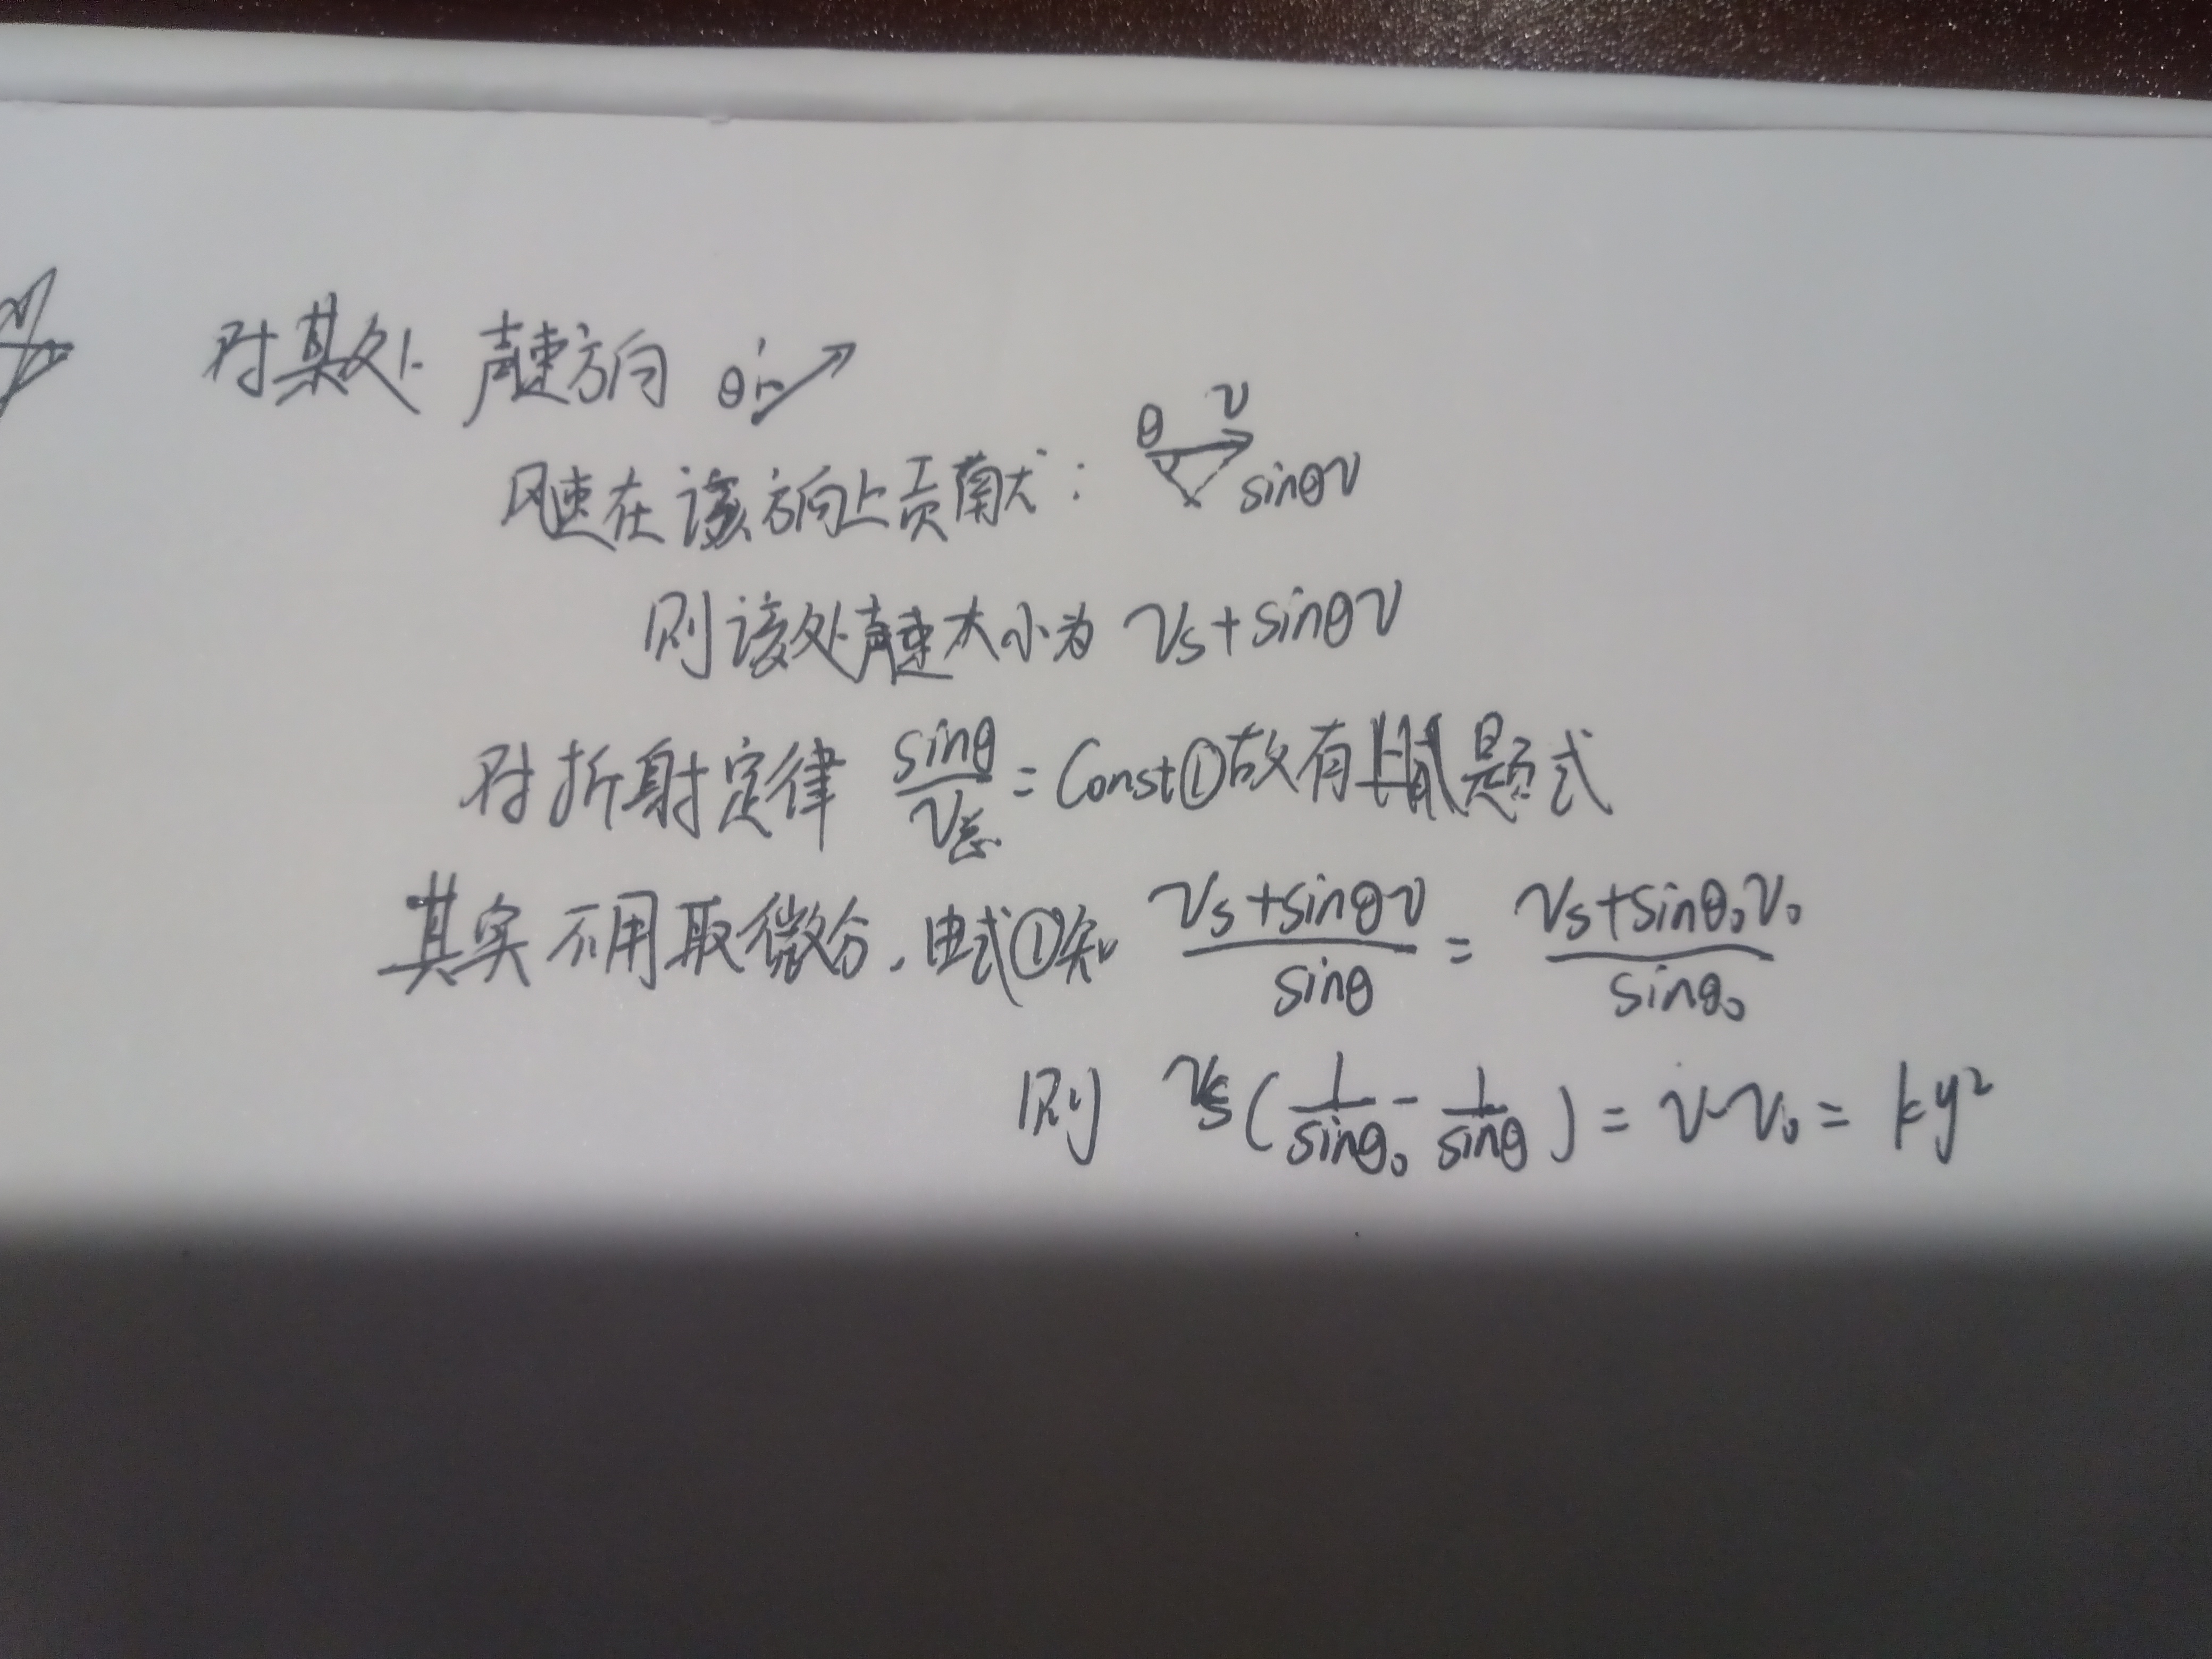 对某处 声速方向 θ
风速在该方向上贡献: θ v sinθv
则该处声速大小为 vs+sinθv
对折射定律 sinθ/v总 = Const① 故有题式
其实不用取微分,由式①知 (vs+sinθv)/sinθ = (vs+sinθ₀v₀)/sinθ₀
则 vs(1/sinθ₀ - 1/sinθ) = v-v₀ = ky²